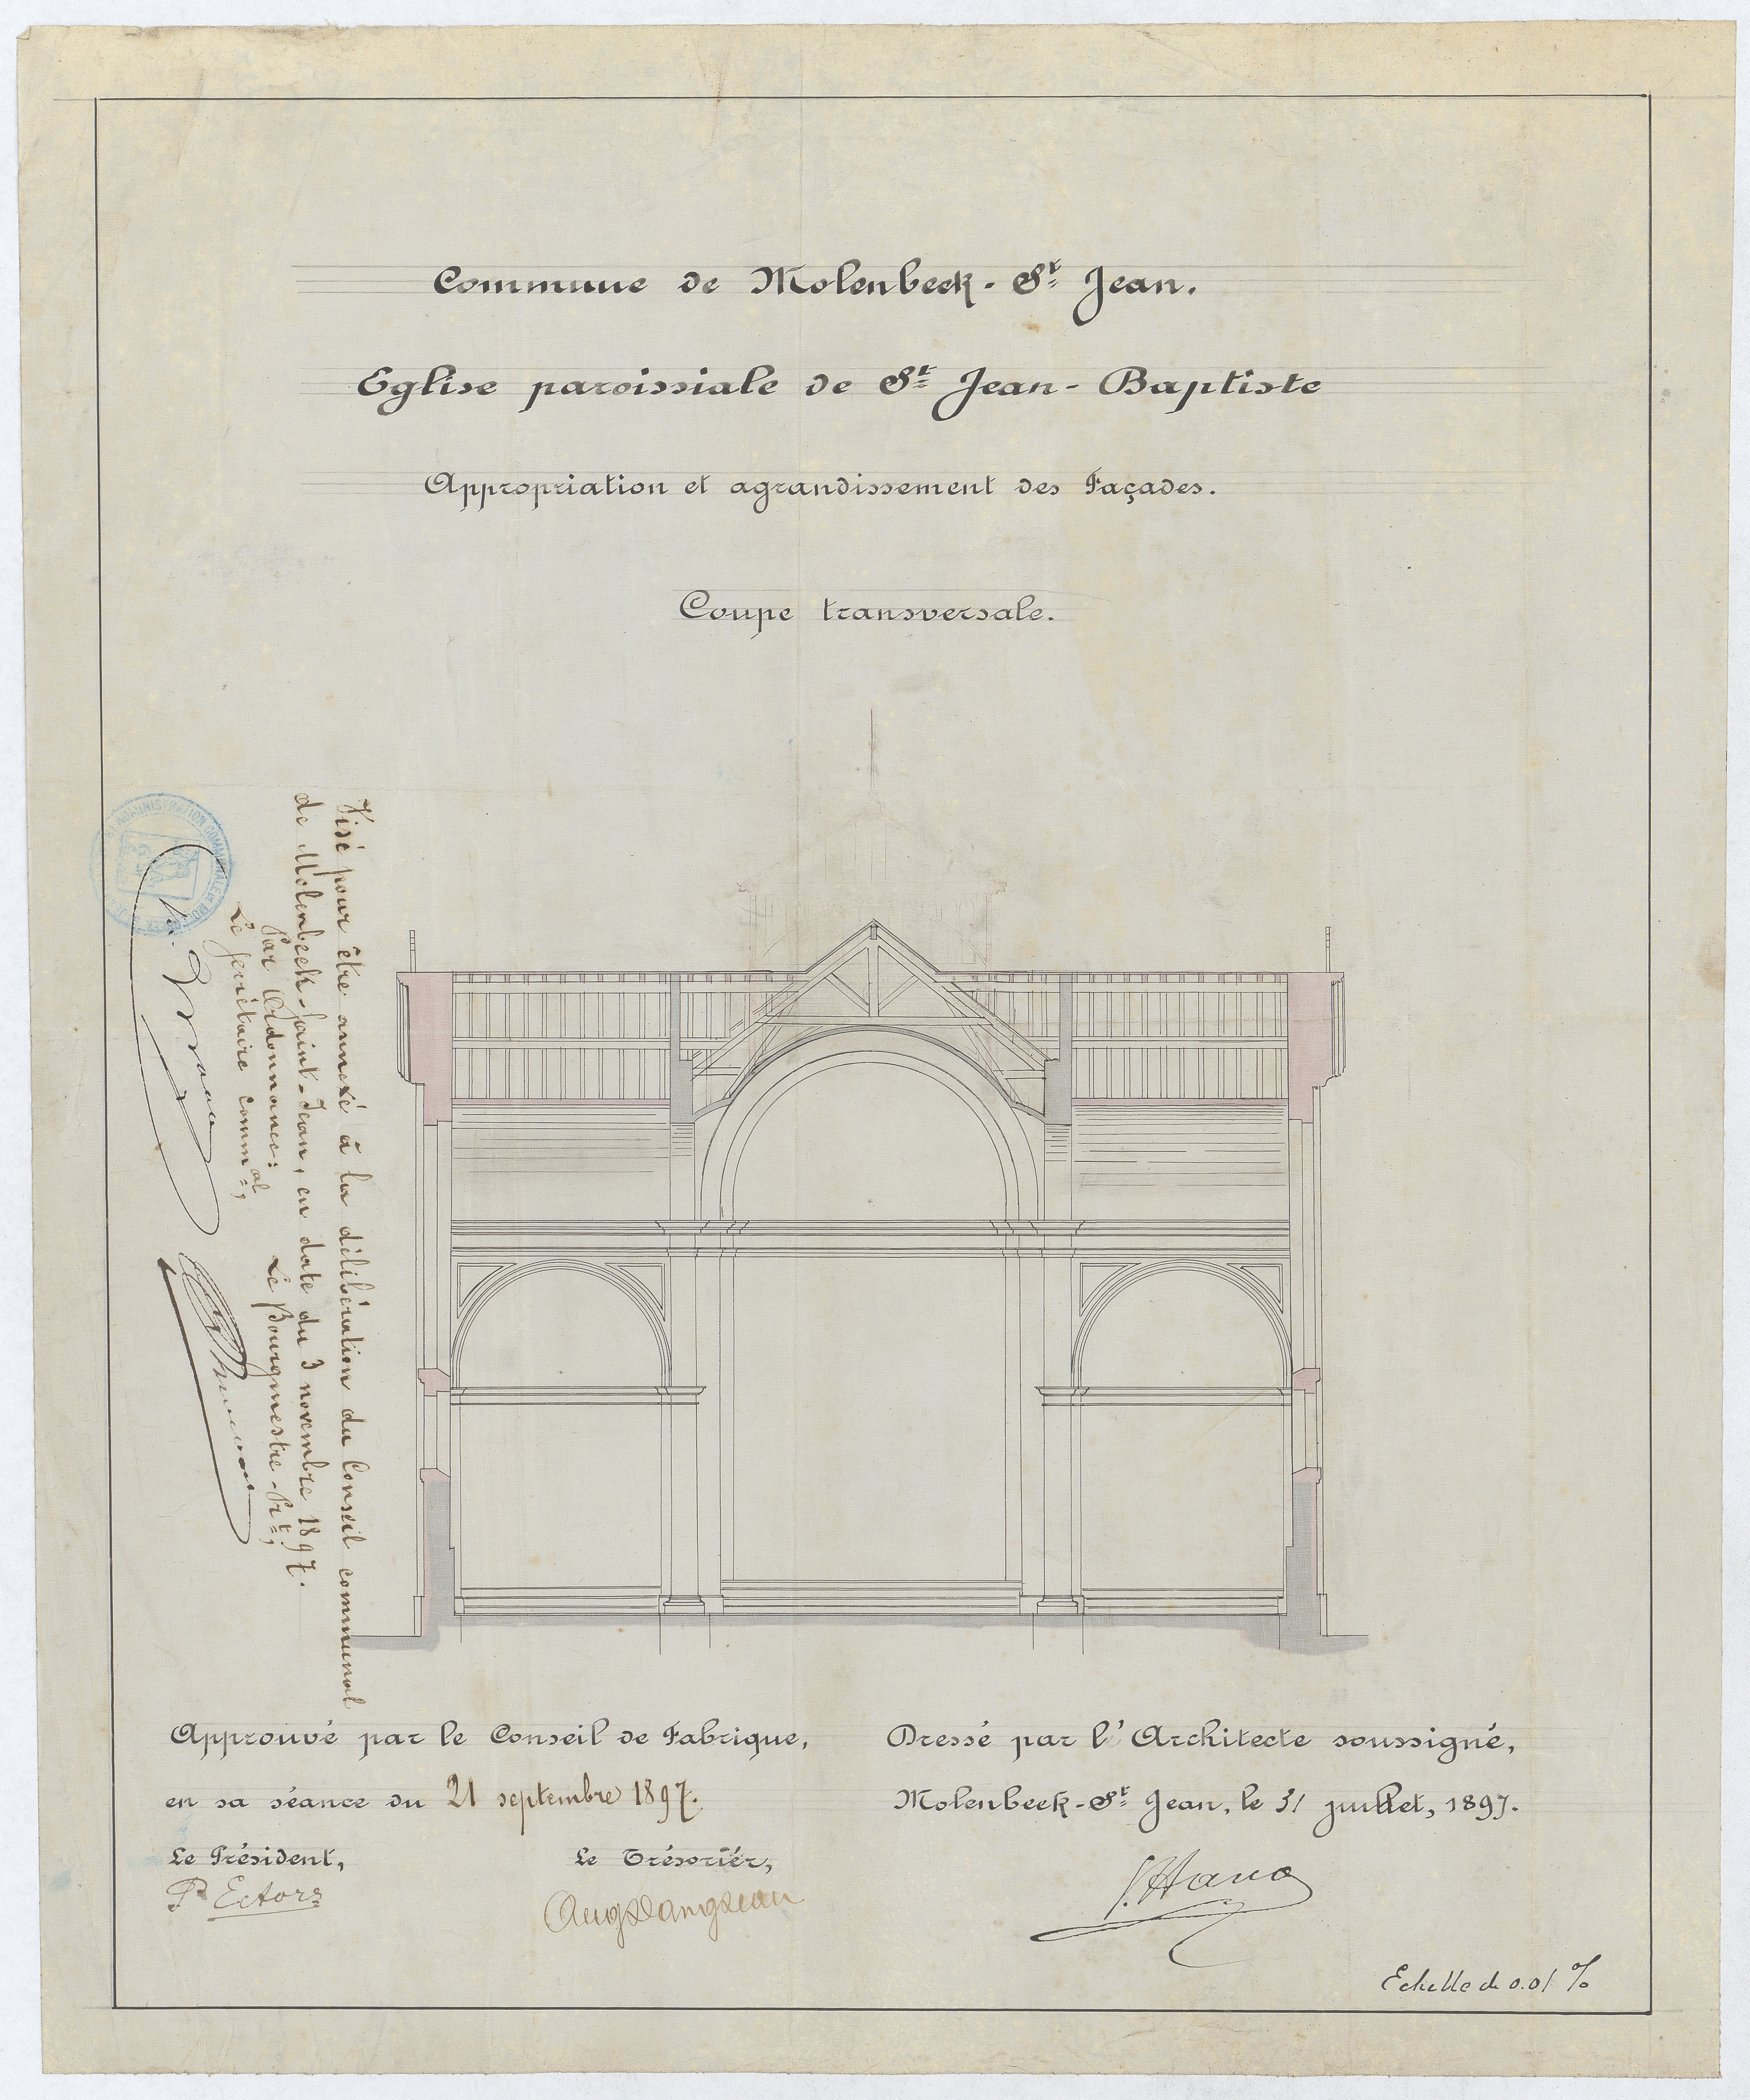 Commune de Molenbeek-St Jean.
Eglise paroissiale de St Jean-Baptiste
Appropriation et agrandissement des Façades.
Coupe transversale.
Visé pour être annexé à la délibération du Conseil communal
de Molenbeek-Saint-Jean, en date du 3 novembre 1897.
Par Ordonnance:
Le Secrétaire commal,
Le Bourgmestre-Prt,
ADMINISTRATION COMMUNALE
Approuvé par le Conseil de Fabrique,
en sa séance du 21 septembre 1897.
Le Président,
Le Trésorier,
P. Ectors
Dressé par l'Architecte soussigné,
Molenbeek-St Jean, le 31 juillet, 1897.
Echelle de 0.01 %